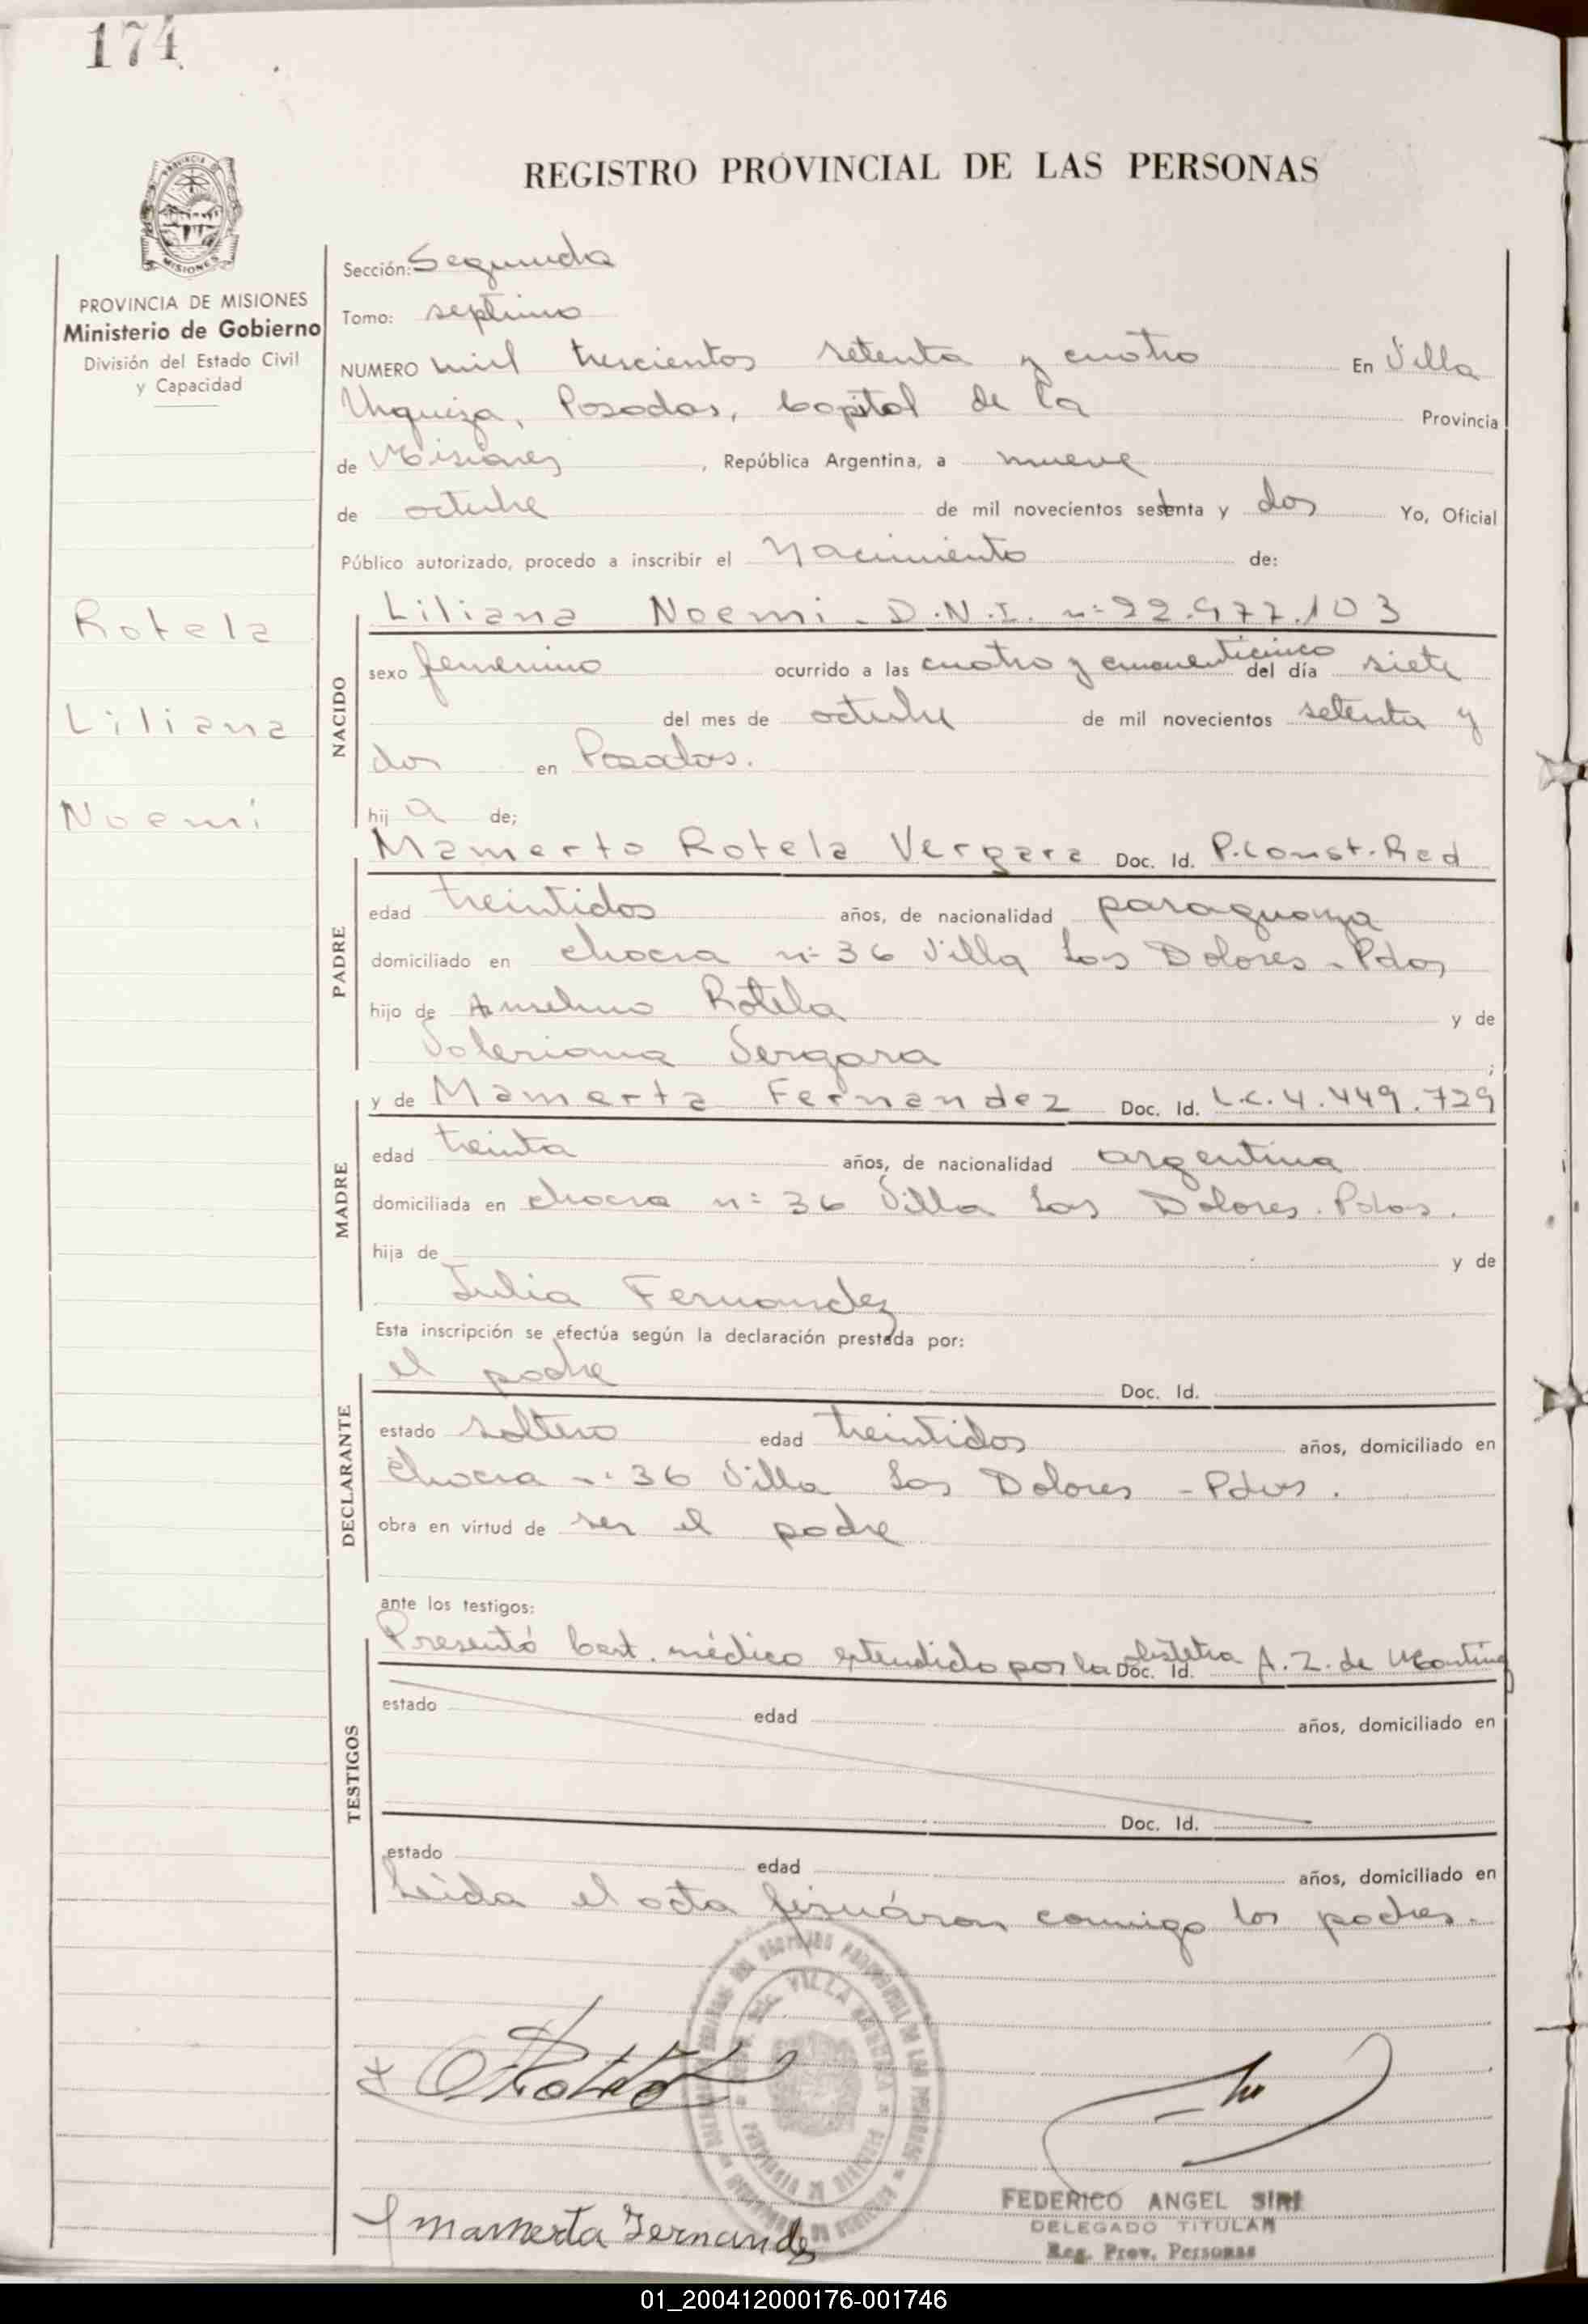 174
REGISTRO PROVINCIAL DE LAS PERSONAS
PROVINCIA DE MISIONES
Ministerio de Gobierno
División del Estado Civil
y Capacidad
Rotela
Liliana
Noemí
Sección: Segunda
Tomo: septimo
NUMERO mil trescientos setenta y cuatro En Villa
Urquiza, Posadas, Capital de la Provincia
de Misiones, República Argentina, a nueve
de octubre de mil novecientos setenta y dos Yo, Oficial
Público autorizado, procedo a inscribir el Nacimiento de:
Liliana Noemi - D.N.I. nº 22.977.103
NACIDO
sexo femenino ocurrido a las cuatro y cincuenticinco del día siete
del mes de octubre de mil novecientos setenta y
dos en Posadas.
hija de;
Mamerto Rotela Vergara Doc. Id. P.Const. Red
PADRE
edad treintidos años, de nacionalidad paraguaya
domiciliado en chacra nº 36 Villa Los Dolores - Pdas
hijo de Anselmo Rotela y de
Valeriana Vergara ;
MADRE
y de Mamerta Fernandez Doc. Id. L.C. 4.449.729
edad treinta años, de nacionalidad argentina
domiciliada en chacra nº 36 Villa Los Dolores. Pdas.
hija de y de
Julia Fernandez
Esta inscripción se efectúa según la declaración prestada por:
el padre Doc. Id.
DECLARANTE
estado soltero edad treintidos años, domiciliado en
chacra nº 36 Villa Los Dolores - Pdas.
obra en virtud de ser el padre
ante los testigos:
TESTIGOS
Presentó Cert. médico extendido por la obstetra Doc. Id. A. Z. de
estado edad años, domiciliado en
Doc. Id.
estado edad años, domiciliado en
Leida el acta firmáron conmigo los padres.
Mamerta Fernandez
FEDERICO ANGEL SIRI
DELEGADO TITULAR
Reg. Prov. Personas
01_200412000176-001746